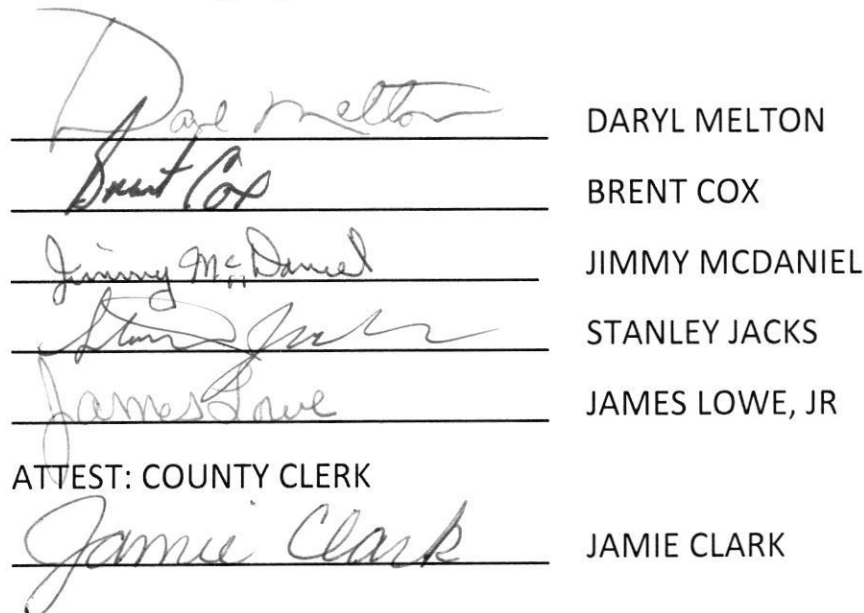 Daryl Melton DARYL MELTON
Brent Cox BRENT COX
Jimmy McDaniel JIMMY MCDANIEL
Stan Jacks STANLEY JACKS
James Lowe JAMES LOWE, JR
ATTEST: COUNTY CLERK
Jamie Clark JAMIE CLARK